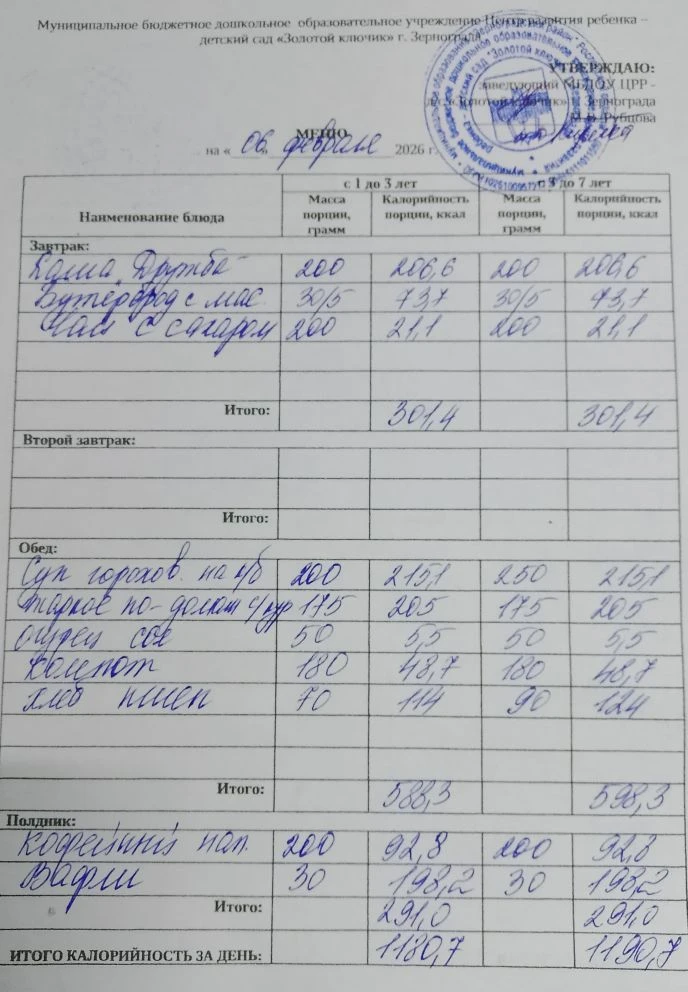 Муниципальное бюджетное дошкольное образовательное учреждение Центр развития ребенка –
детский сад «Золотой ключик» г. Зернограда
УТВЕРЖДАЮ:
заведующий МБДОУ ЦРР -
д/с «Золотой ключик» г. Зернограда
Рубцова
МЕНЮ
на « 06 » февраля 2026 г.
Наименование блюда с 1 до 3 лет с 3 до 7 лет
Масса порции, грамм Калорийность порции, ккал Масса порции, грамм Калорийность порции, ккал
Завтрак:
Каша "Дружба" 200 206,6 200 206,6
Бутерброд с мас. 30/5 73,7 30/5 73,7
Чай с сахаром 200 21,1 200 21,1
Итого: 301,4 301,4
Второй завтрак:
Итого:
Обед:
Суп горохов. на к/б 200 215,1 250 215,1
Жаркое по-домаш с/кур 175 205 175 205
Огурец сол 50 5,5 50 5,5
Компот 180 48,7 180 48,7
Хлеб пшен 70 114 90 124
Итого: 588,3 598,3
Полдник:
Кофейный нап. 200 92,8 200 92,8
Вафли 30 198,2 30 198,2
Итого: 291,0 291,0
ИТОГО КАЛОРИЙНОСТЬ ЗА ДЕНЬ: 1180,7 1190,7